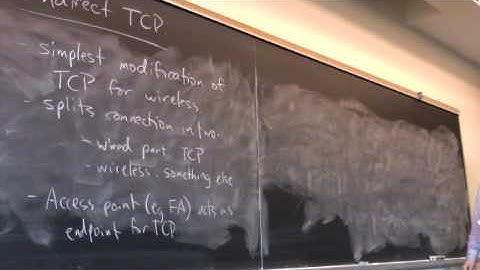 ndirect TCP
- simplest modification of
TCP for wireless
- splits connection in two.
- wired part TCP
- wireless: something else
- Access point (eg FA) acts as
endpoint for TCP